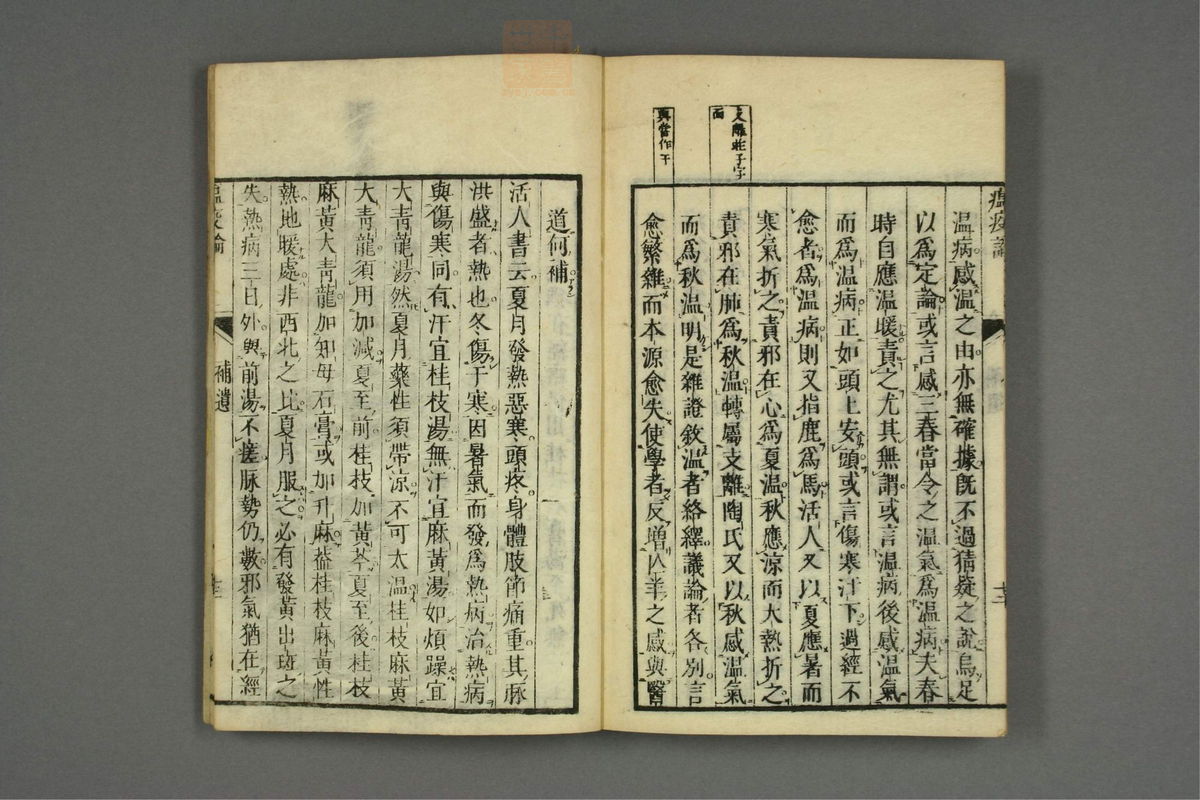 支離莊子字
面
與當作于
瘟疫論
温病感温之由亦無確據既不過猜疑之說烏足
以爲定論或言感三春當令之温氣爲温病夫春
時自應温暖責之尤其無謂或言温病後感温氣
而爲温病正如頭上安頭或言傷寒汗下過經不
愈者爲温病則又指鹿爲馬活人又以夏應暑而
寒氣折之責邪在心爲夏温秋應涼而大熱折之
責邪在肺爲秋温轉屬支離陶氏又以秋感温氣
而爲秋温明是雜證敘温者絡繹議論者各別言
愈繁雜而本源愈失使學者反增亾羊之感與醫
道何補
活人書云夏月發熱惡寒頭疼身體肢節痛重其脉
洪盛者熱也冬傷于寒因暑氣而發爲熱病治熱病
與傷寒同有汗宜桂枝湯無汗宜麻黃湯如煩躁宜
大青龍湯然夏月藥性須帶涼不可太温桂枝麻黃
大青龍須用加減夏至前桂枝加黃芩夏至後桂枝
麻黃大青龍加知母石膏或加升麻葢桂枝麻黃性
熱地暖處非西北之比夏月服之必有發黃出斑之
失熱病三日外與前湯不瘥脉勢仍數邪氣猶在經
瘟疫論
補遺